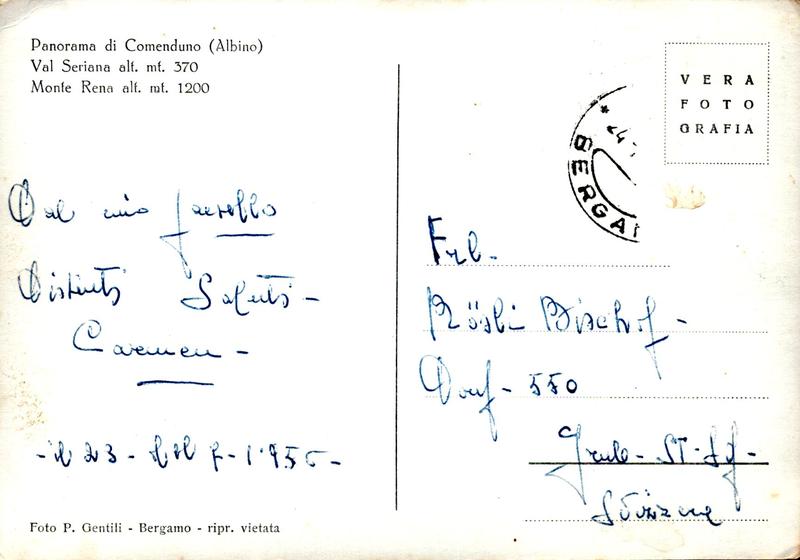 Panorama di Comenduno (Albino)
Val Seriana alt. mt. 370
Monte Rena alt. mt. 1200
VERA
FOTO
GRAFIA
BERGA
Dal mio paesello
Distinti Saluti -
Carmen -
- il 23 - del 7 - 1955 -
Frl -
Rösli Bischof -
Dorf - 550
ST.
Svizzera
Foto P. Gentili - Bergamo - ripr. vietata